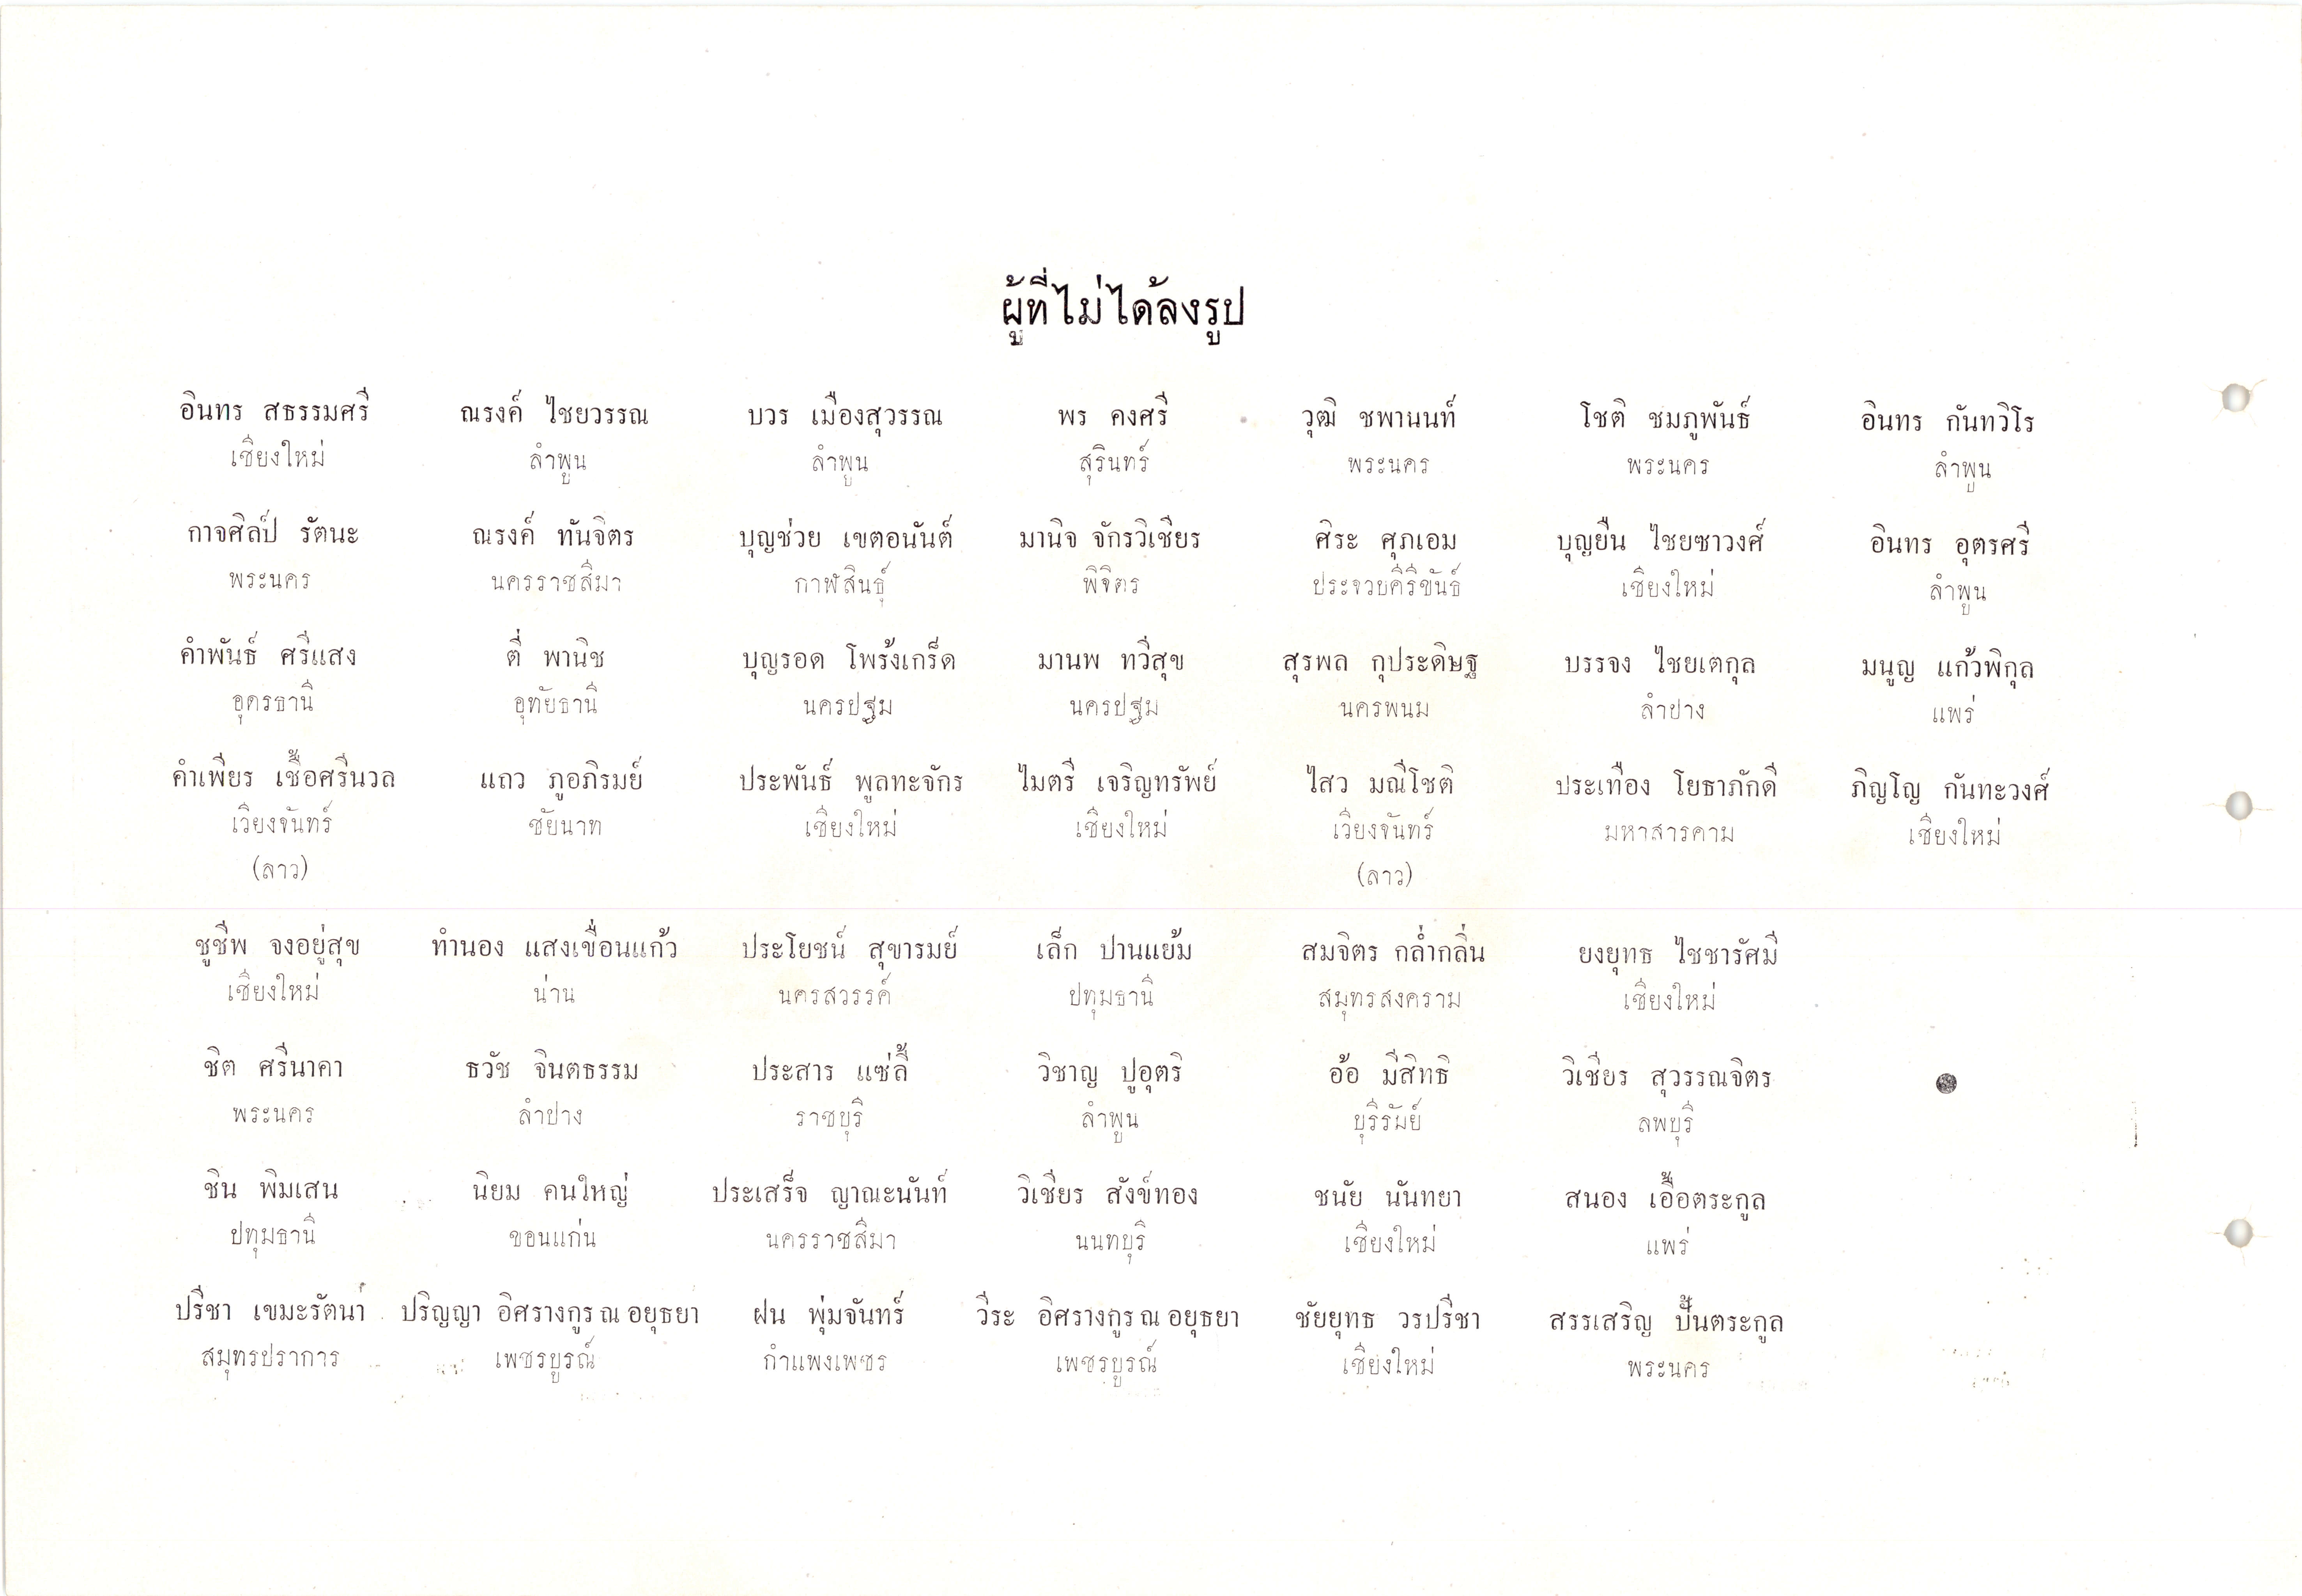 ผู้ที่ไม่ได้ลงรูป
อินทร สธรรมศรี ณรงค์ ไชยวรรณ บวร เมืองสุวรรณ พร คงศรี วุฒิ ชพานนท์ โชติ ชมภูพันธ์ อินทร กันทวิโร
เชียงใหม่ ลำพูน ลำพูน สุรินทร์ พระนคร พระนคร ลำพูน
กาจศิลป์ รัตนะ ณรงค์ ทันจิตร บุญช่วย เขตอนันต์ มานิจ จักรวิเชียร ศิระ ศุภเอม บุญยืน ไชยซาวงศ์ อินทร อุตรศรี
พระนคร นครราชสีมา กาฬสินธุ์ พิจิตร ประจวบคีรีขันธ์ เชียงใหม่ ลำพูน
คำพันธ์ ศรีแสง ตี่ พานิช บุญรอด โพร้งเกร็ด มานพ ทวีสุข สุรพล กุประดิษฐ บรรจง ไชยเตกุล มนูญ แก้วพิกุล
อุดรธานี อุทัยธานี นครปฐม นครปฐม นครพนม ลำปาง แพร่
คำเพียร เชื้อศรีนวล แถว ภูอภิรมย์ ประพันธ์ พูลทะจักร ไมตรี เจริญทรัพย์ ไสว มณีโชติ ประเทือง โยธาภักดี ภิญโญ กันทะวงศ์
เวียงจันทร์ ชัยนาท เชียงใหม่ เชียงใหม่ เวียงจันทร์ มหาสารคาม เชียงใหม่
(ลาว) (ลาว)
ชูชีพ จงอยู่สุข ทำนอง แสงเขื่อนแก้ว ประโยชน์ สุขารมย์ เล็ก ปานแย้ม สมจิตร กล่ำกลิ่น ยงยุทธ ไชชารัศมี
เชียงใหม่ น่าน นครสวรรค์ ปทุมธานี สมุทรสงคราม เชียงใหม่
ชิต ศรีนาคา ธวัช จินตธรรม ประสาร แซ่ลี้ วิชาญ ปูอุตริ อ้อ มีสิทธิ วิเชียร สุวรรณจิตร
พระนคร ลำปาง ราชบุรี ลำพูน บุรีรัมย์ ลพบุรี
ชิน พิมเสน นิยม คนใหญ่ ประเสร็จ ญาณะนันท์ วิเชียร สังข์ทอง ชนัย นันทยา สนอง เอื้อตระกูล
ปทุมธานี ขอนแก่น นครราชสีมา นนทบุรี เชียงใหม่ แพร่
ปรีชา เขมะรัตนา ปริญญา อิศรางกูร ณ อยุธยา ฝน พุ่มจันทร์ วีระ อิศรางกูร ณ อยุธยา ชัยยุทธ วรปรีชา สรรเสริญ ปั้นตระกูล
สมุทรปราการ เพชรบูรณ์ กำแพงเพชร เพชรบูรณ์ เชียงใหม่ พระนคร